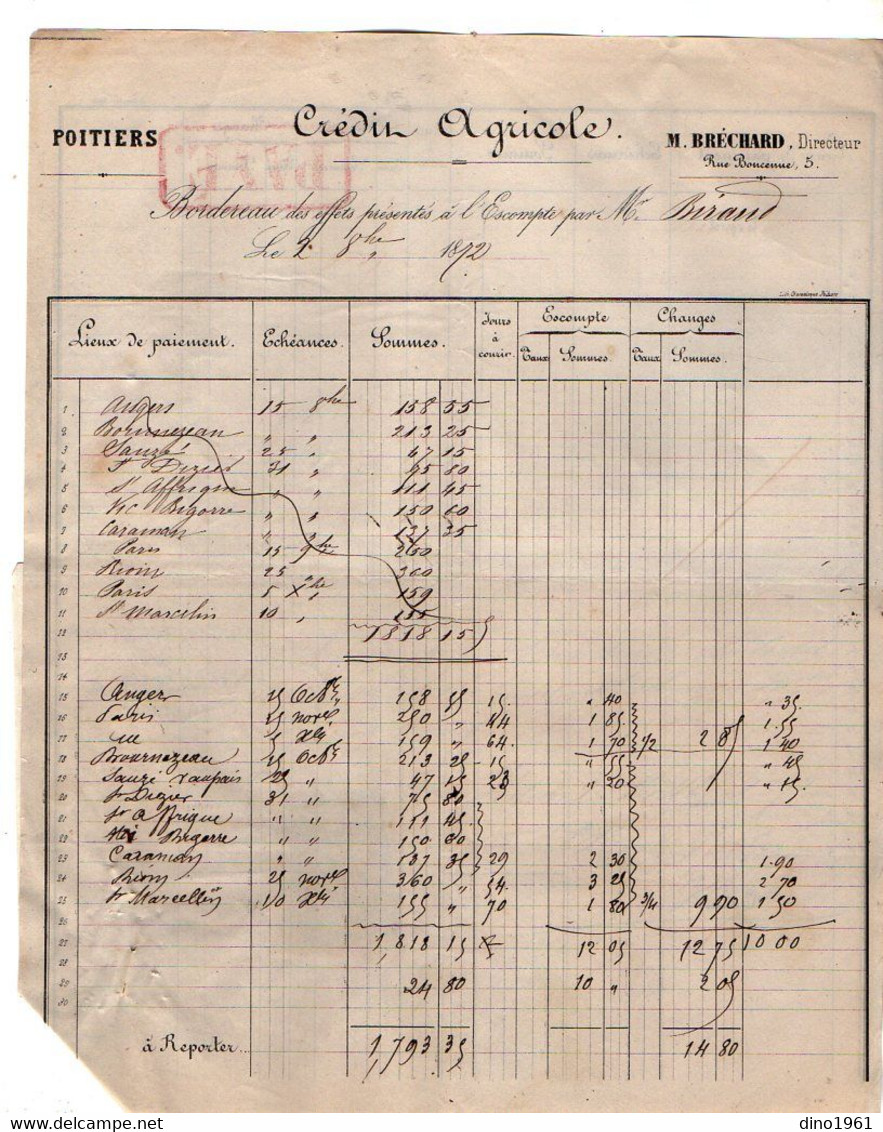 Crédit Agricole.
POITIERS
M. BRÉCHARD, Directeur
Rue Boncenne, 5.
Bordereau des effets présentés à l'Escompte par Mr Biraud
Le 2 8bre 1872
Lieux de paiement. Echéances. Sommes. Jours à courir. Escompte Taux Sommes. Changes Taux Sommes.
1 Angers 15 8bre 158 55
2 Bournezeau " " 213 25
3 Sauzé 25 " 47 15
4 St Dizier 31 " 75 80
5 St Affrique " " 111 45
6 Vic Bigorre " " 150 60
7 Caraman " " 137 35
8 Paris 15 9bre 250
9 Riom 25 360
10 Paris 5 Xbre 159
11 St Marcelin 10 " 155
12 1818 15
13
14
15 Angers 15 Octbre 158 55 15 " 40 " 35
16 Paris 15 novre 250 " 44 1 85 1.55
17 5 Xbre 159 " 64 1 70 1/2 2 85 1 40
18 Bournezeau 15 Octbre 213 25 15 " 55 " 45
19 Sauzé 25 " 47 15 23 " 20 " 15
20 St Dizier 31 " 75 80
21 St Affrique " " 111 45
22 Vic Bigorre " " 150 60
23 Caraman " " 137 35 29 2 30 1.90
24 Riom 25 novre 360 " 54 3 25 2 70
25 St Marcellin 10 Xbre 155 " 70 1 80 3/4 9 90 1 50
26
27 1,818 15 12 05 12 75 10 00
28
29 24 80 10 " 2 05
30
à Reporter... 1,793 35 14 80
dino1961